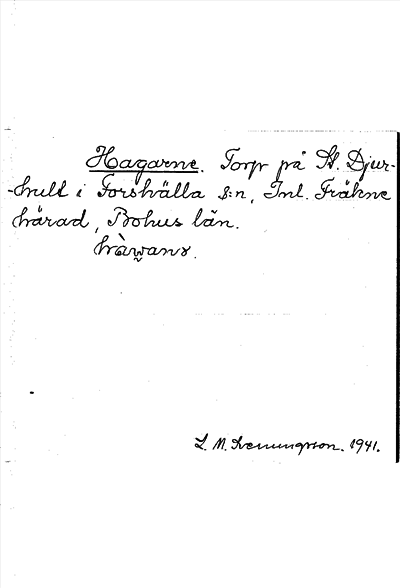 Hagarne. Torp på St. Djur-
-hult i Forshälla s:n, Inl. Fräkne
härad, Bohus län.
hàwanɤ.
L. M. Svenungsson. 1941.